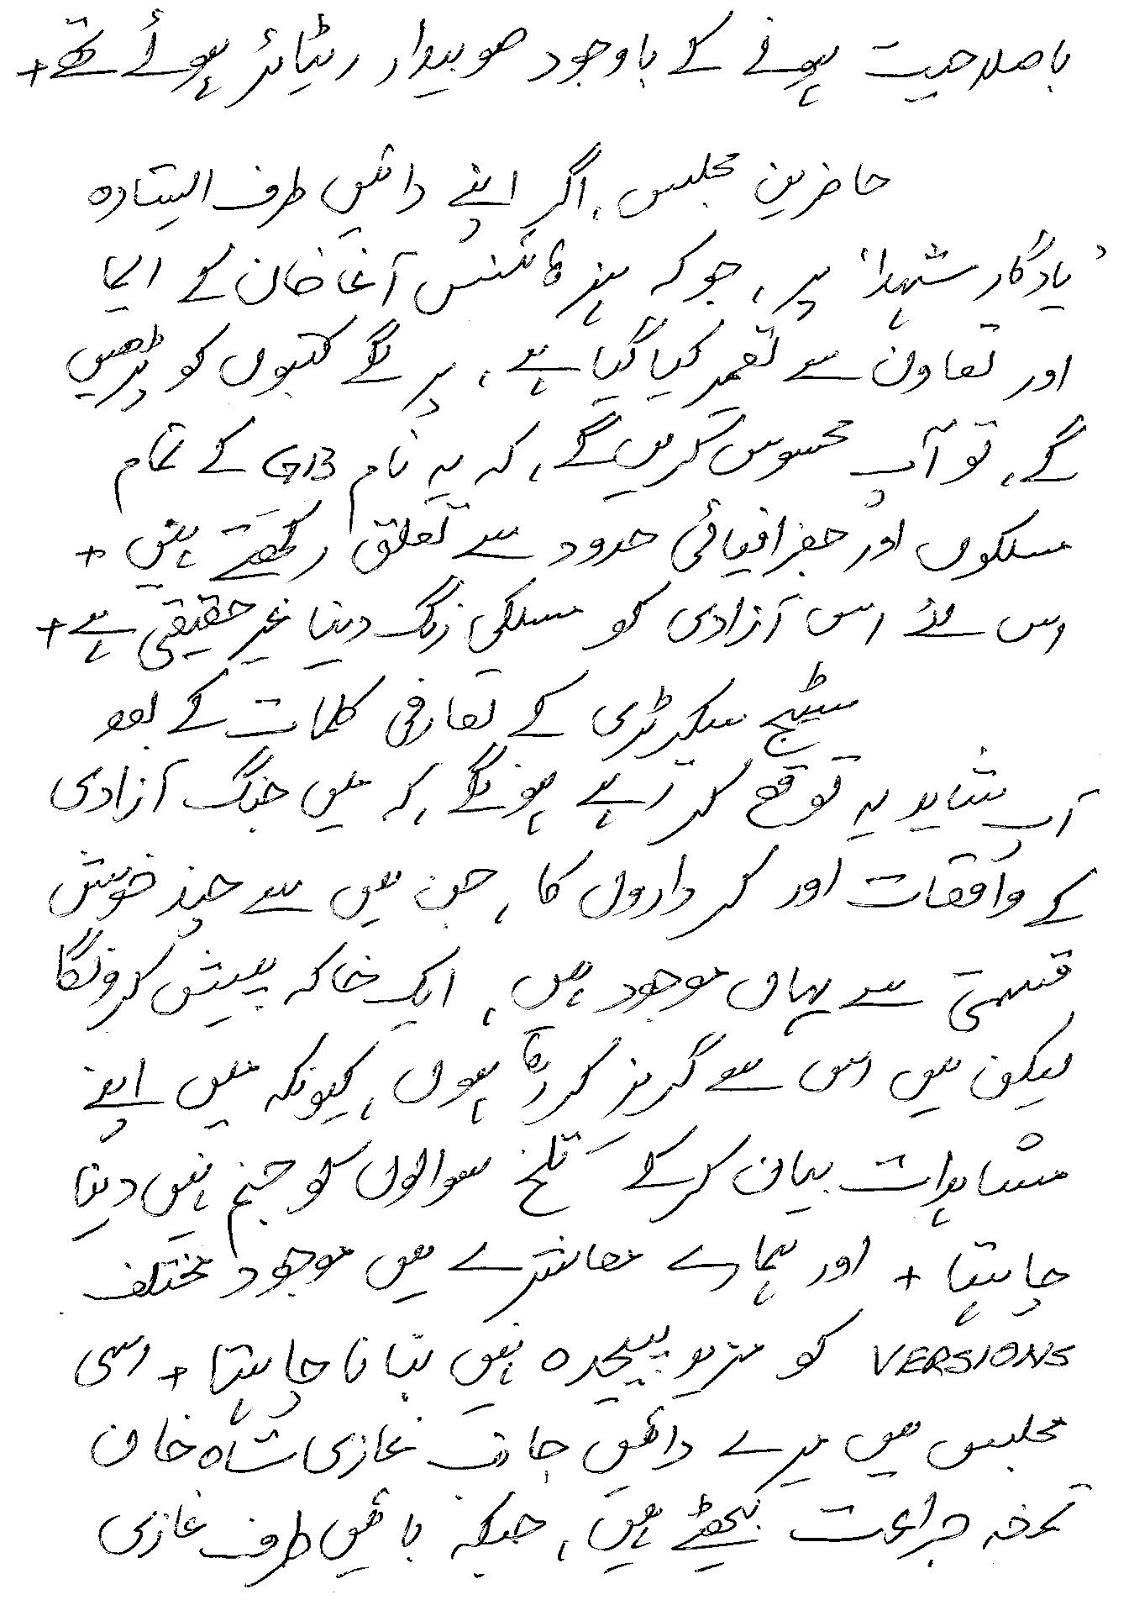 باصلاحیت ہونے کے باوجود صوبیدار ریٹائر ہوئے تھے+
حاضرین مجلس، اگر اپنے دائیں طرف ایستادہ
'یادگار شہدا' پر، جو کہ ہز ہائنس آغا خان کے ایما
اور تعاون سے تعمیر کیا گیا ہے، پر لگے کتبوں کو پڑھیں
گے، تو آپ محسوس کریں گے، کہ یہ نام GB کے تمام
مسلکوں اور جغرافیائی حدود سے تعلق رکھتے ہیں +
اس لئے اس آزادی کو مسلکی رنگ دینا غیر حقیقی ہے+
سٹیج سیکرٹری کے تعارفی کلمات کے بعد
آپ شاید یہ توقع کر رہے ہونگے، کہ میں جنگ آزادی
کے واقعات اور کرداروں کا، جن میں سے چند خوش
قسمتی سے یہاں موجود ہیں، ایک خاکہ پیش کرونگا
لیکن میں اس سے گریز کر رہا ہوں، کیونکہ میں اپنے
مشاہدات بیان کرکے تلخ سوالوں کو جنم نہیں دینا
چاہتا + اور ہمارے معاشرے میں موجود مختلف
VERSIONS کو مزید پیچیدہ نہیں بنانا چاہتا + اسی
مجلس میں میرے دائیں جانب غازی شاہ خان
تمغہ جراءت بیٹھے ہیں، جبکہ بائیں طرف غازی